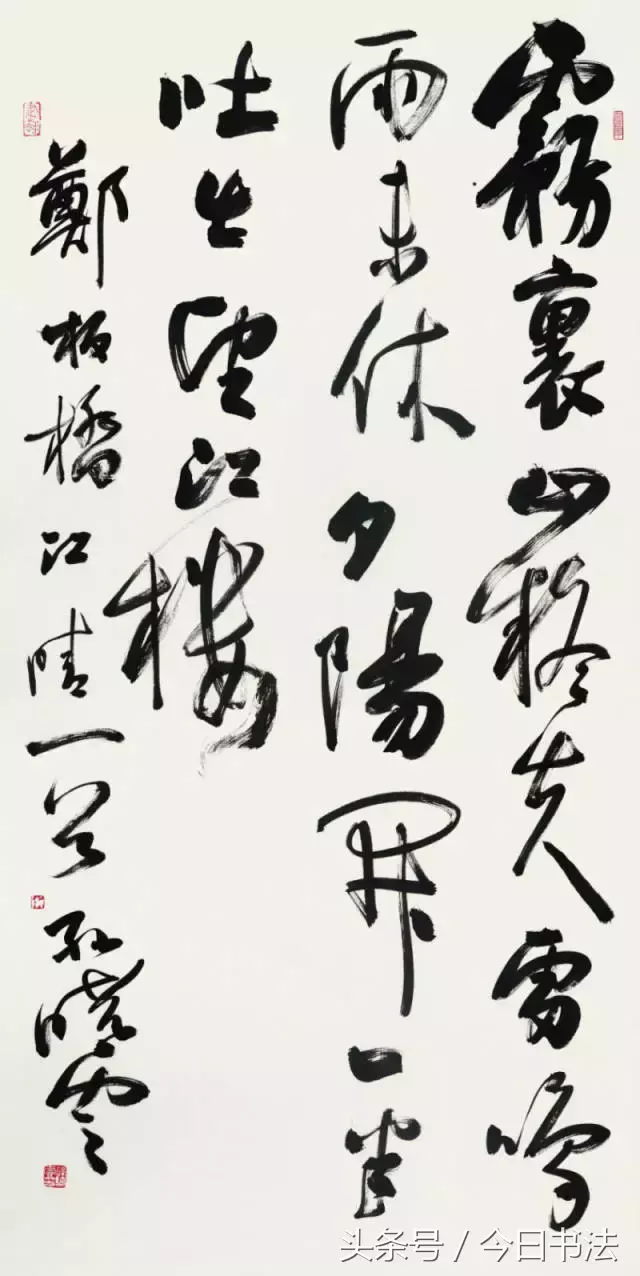 霧裏山疑失雷鳴
雨未休夕陽開一半
吐出望江樓
鄭板橋江晴一首 孫曉雲
头条号 / 今日书法